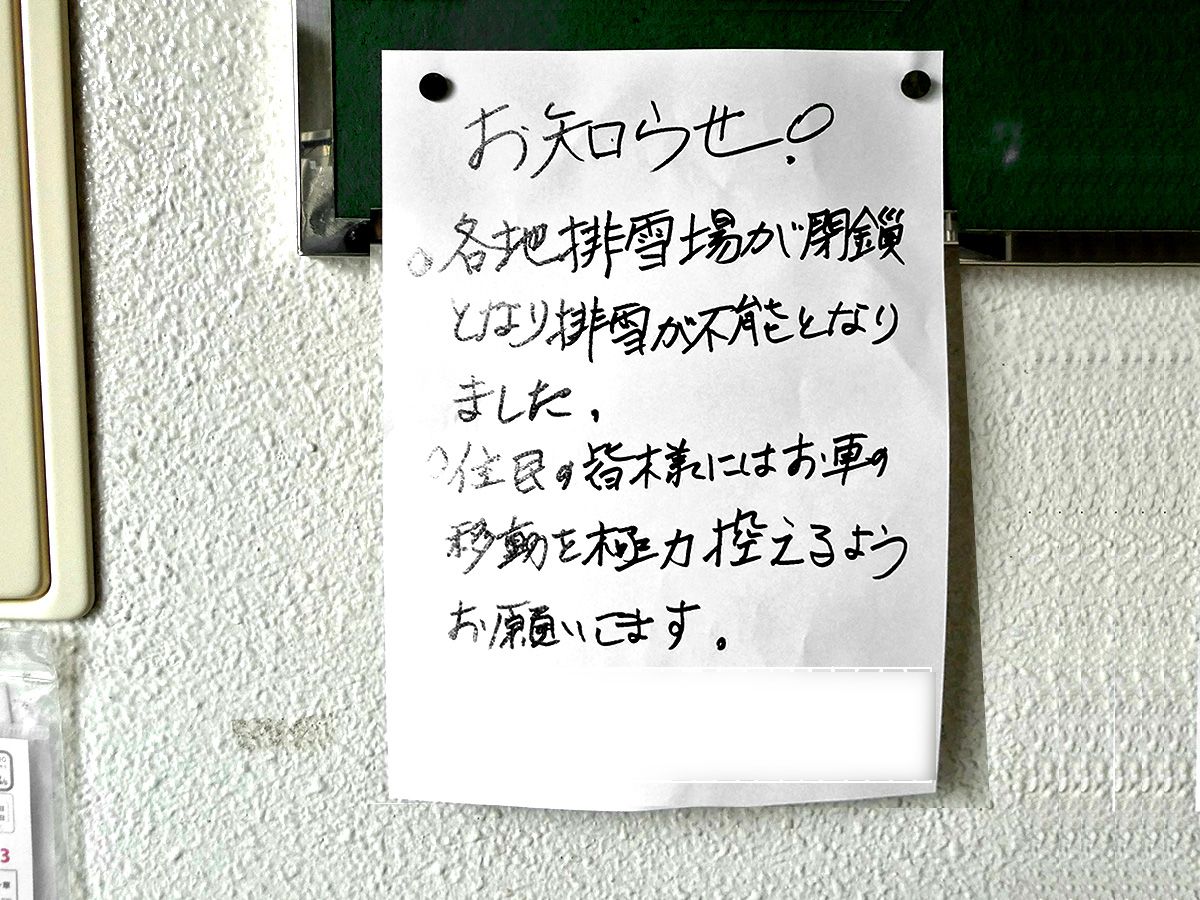 お知らせ!
○各地排雪場が閉鎖
となり排雪が不能となり
ました。
○住民の皆様にはお車の
移動を極力控えるよう
お願いします。
3